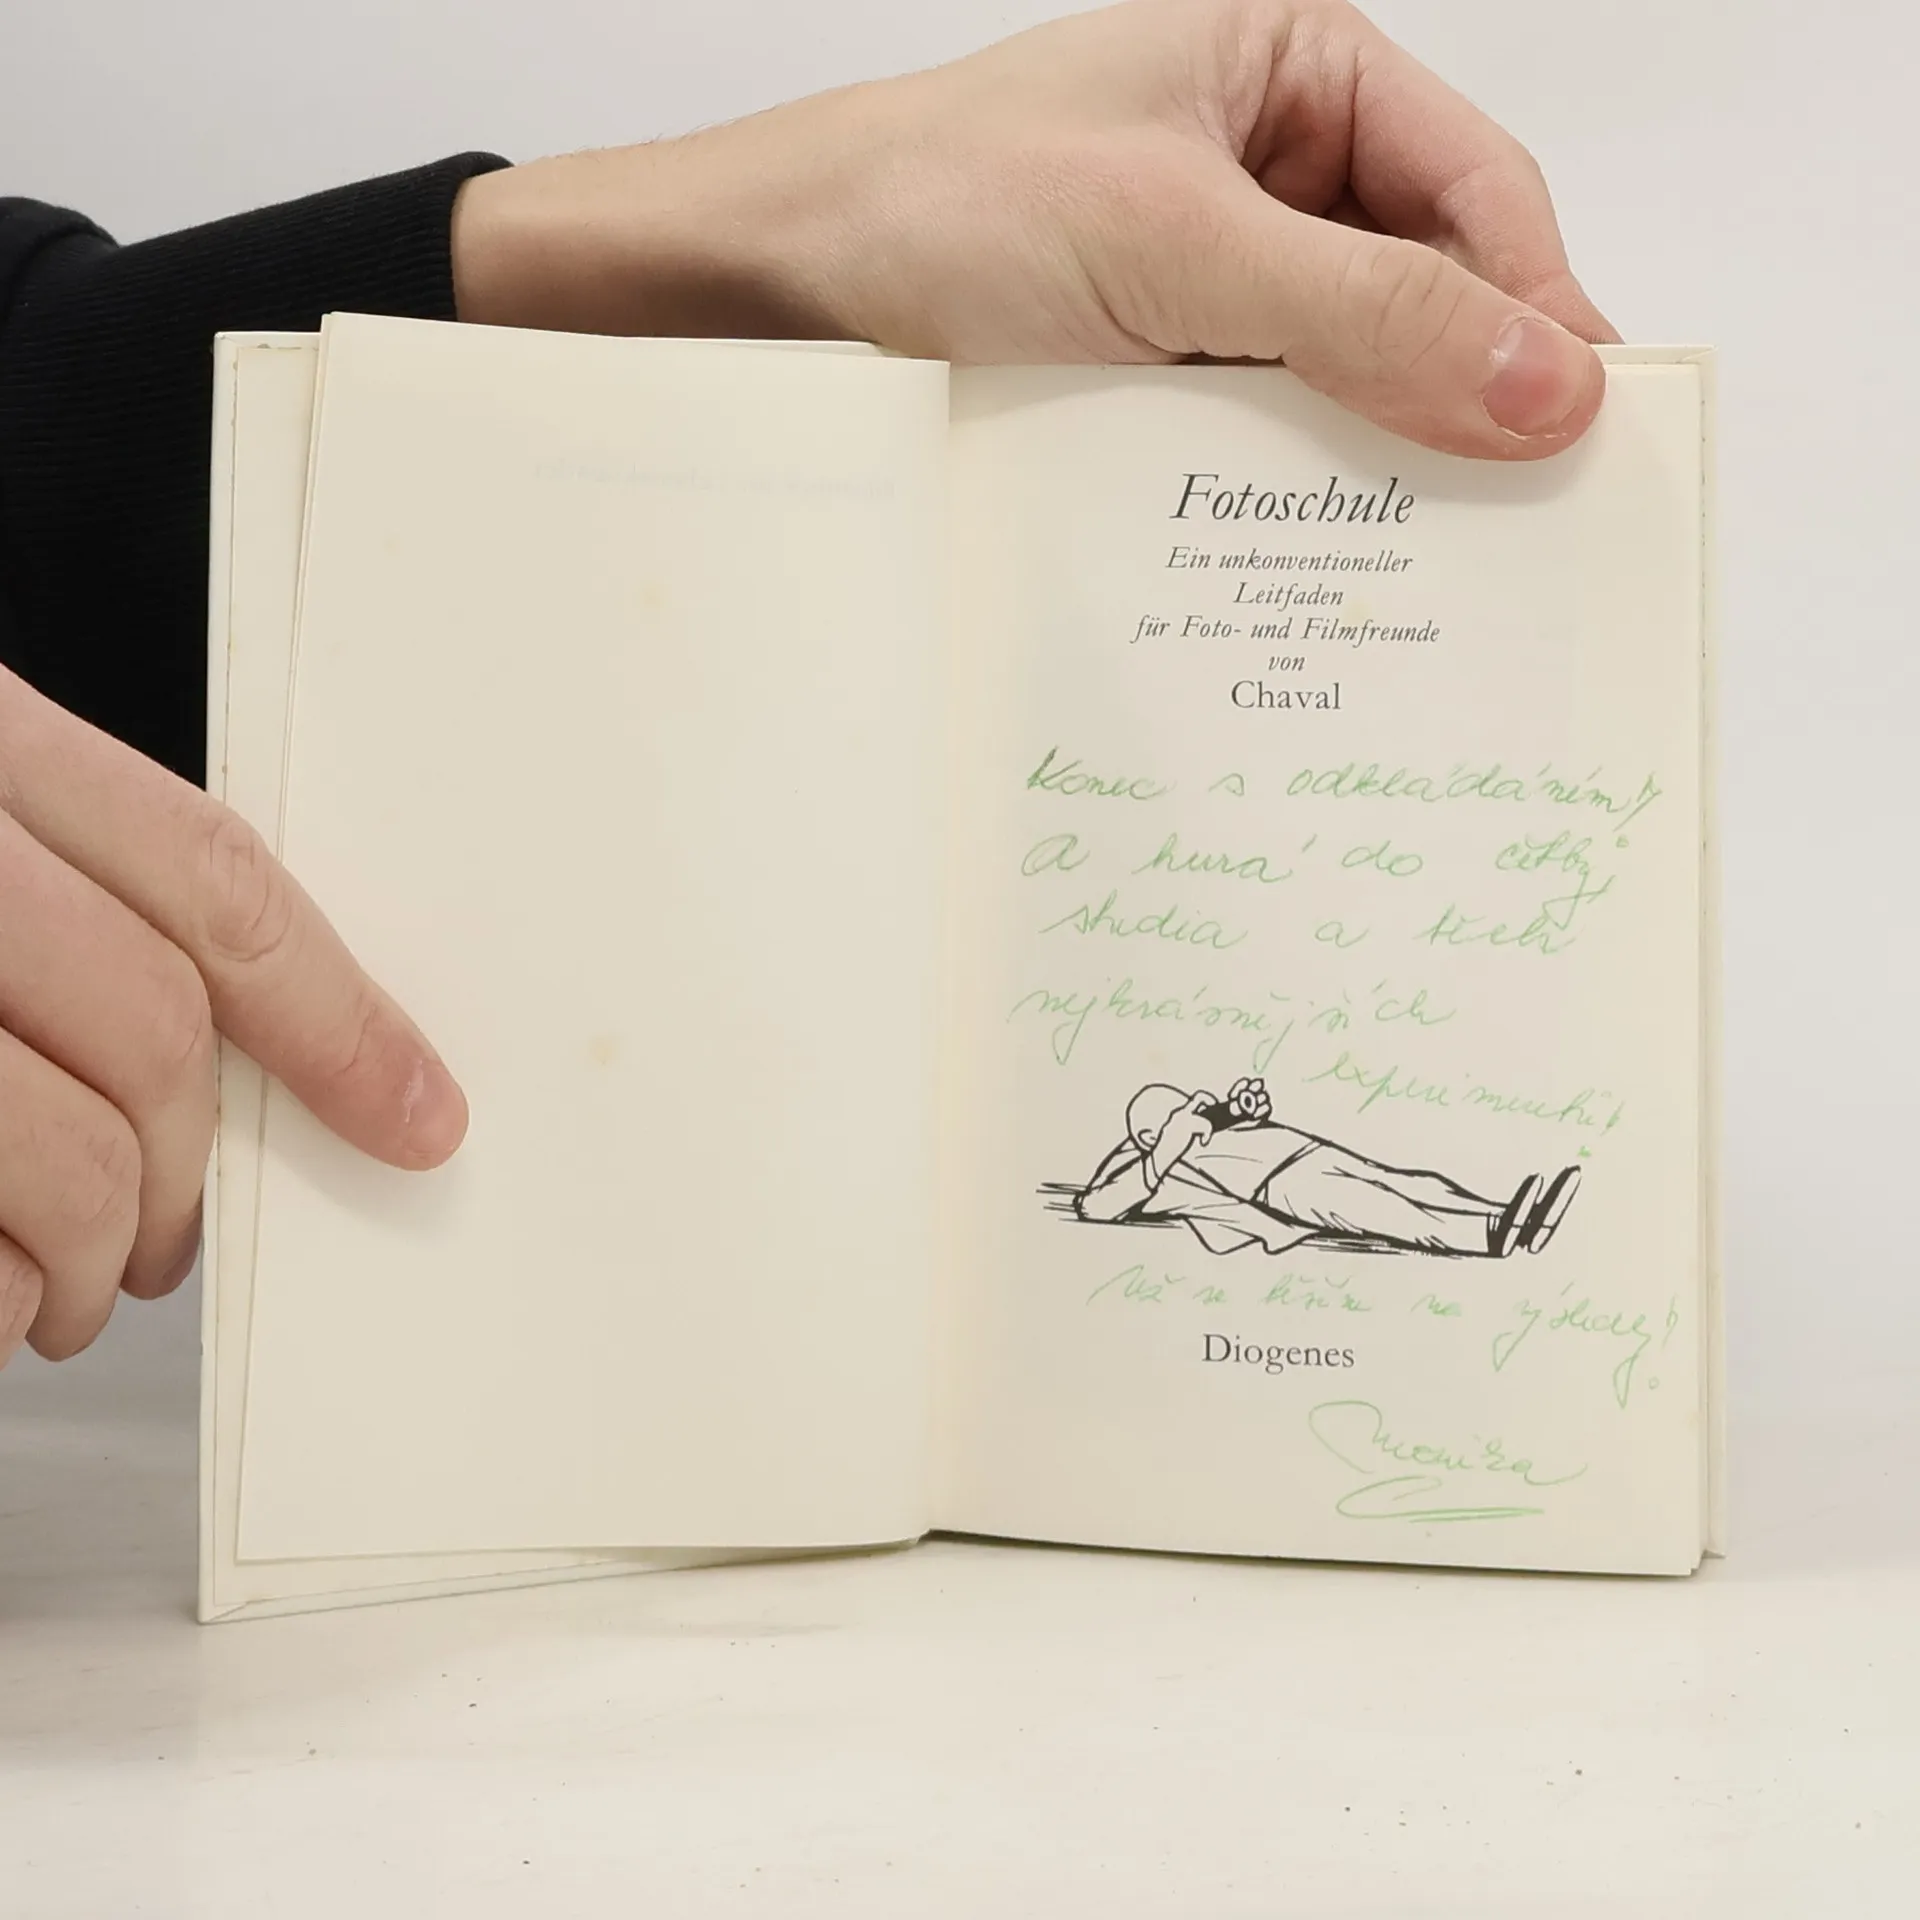 Fotoschule
Ein unkonventioneller
Leitfaden
für Foto- und Filmfreunde
von
Chaval
Konec s odkládáním!
A hurá do četby,
studia a těch
nejkrásnějších
experimentů!
Už se těším na výsledky!
Diogenes
Monika